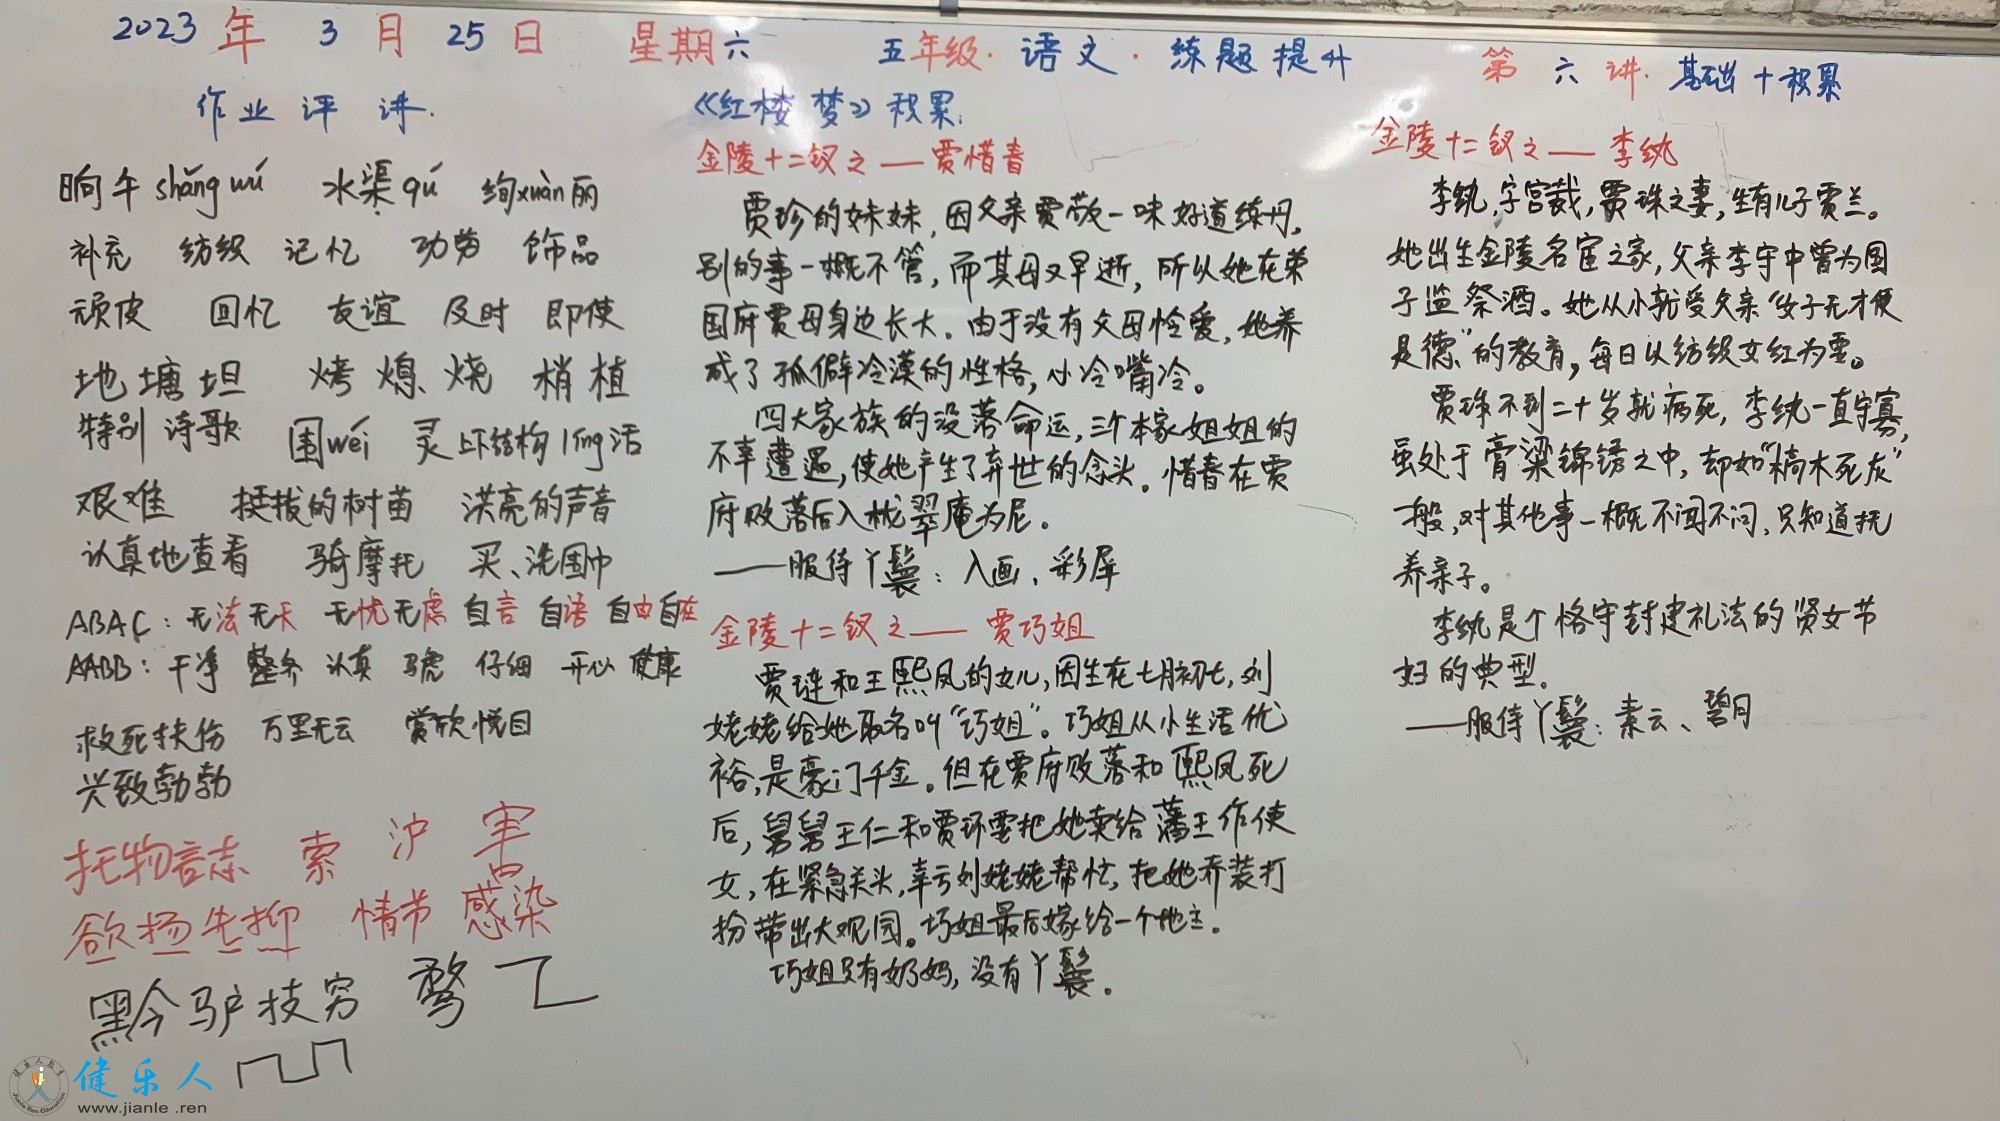 2023年3月25日 星期六 五年级·语文·练题提升 第六讲·基础+积累
作业评讲.
晌午shǎng wǔ 水渠qú 绚xuàn丽
补充 纺织 记忆 功劳 饰品
顽皮 回忆 友谊 及时 即使
地塘坦 烤熄烧 梢植
特别 诗歌 围wéi 灵上下结构líng活
艰难 挺拔的树苗 洪亮的声音
认真地查看 骑摩托 买、洗围巾
ABAC：无法无天 无忧无虑 自言自语 自由自在
AABB：干净 整齐 认真 马虎 仔细 开心 健康
救死扶伤 万里无云 赏心悦目
兴致勃勃
托物言志 索 沪 害
欲扬先抑 情节 感染
黔驴技穷 鹜
健乐人
www.jianle.ren
《红楼梦》积累：
金陵十二钗之——贾惜春
贾珍的妹妹，因父亲贾敬一味好道练丹，
别的事一概不管，而其母又早逝，所以她在荣
国府贾母身边长大。由于没有父母怜爱，她养
成了孤僻冷漠的性格，心冷嘴冷。
四大家族的没落命运，三个本家姐姐的
不幸遭遇，使她产生了弃世的念头。惜春在贾
府败落后入栊翠庵为尼。
——服侍丫鬟：入画、彩屏
金陵十二钗之——贾巧姐
贾琏和王熙凤的女儿，因生在七月初七，刘
姥姥给她取名叫“巧姐”。巧姐从小生活优
裕，是豪门千金。但在贾府败落和熙凤死
后，舅舅王仁和贾环要把她卖给藩王作使
女，在紧急关头，幸亏刘姥姥帮忙，把她乔装打
扮带出大观园。巧姐最后嫁给一个地主。
巧姐只有奶妈，没有丫鬟。
金陵十二钗之——李纨
李纨，字宫裁，贾珠之妻，生有儿子贾兰。
她出生金陵名宦之家，父亲李守中曾为国
子监祭酒。她从小就受父亲“女子无才便
是德”的教育，每日以纺织女红为要。
贾珠不到二十岁就病死，李纨一直守寡，
虽处于膏粱锦绣之中，却如“槁木死灰”
一般，对其他事一概不闻不问，只知道抚
养亲子。
李纨是个恪守封建礼法的贤女节
妇的典型。
——服侍丫鬟：素云、碧月